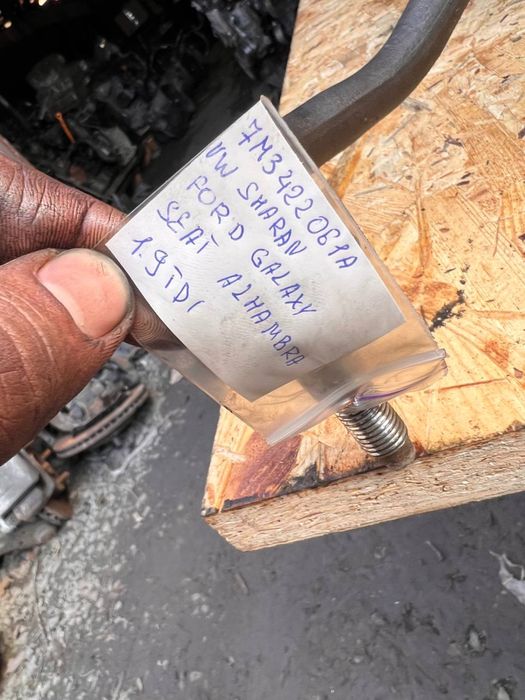 7M3422061A
VW SHARAN
FORD GALAXY
SEAT ALHAMBRA
1.9TDI